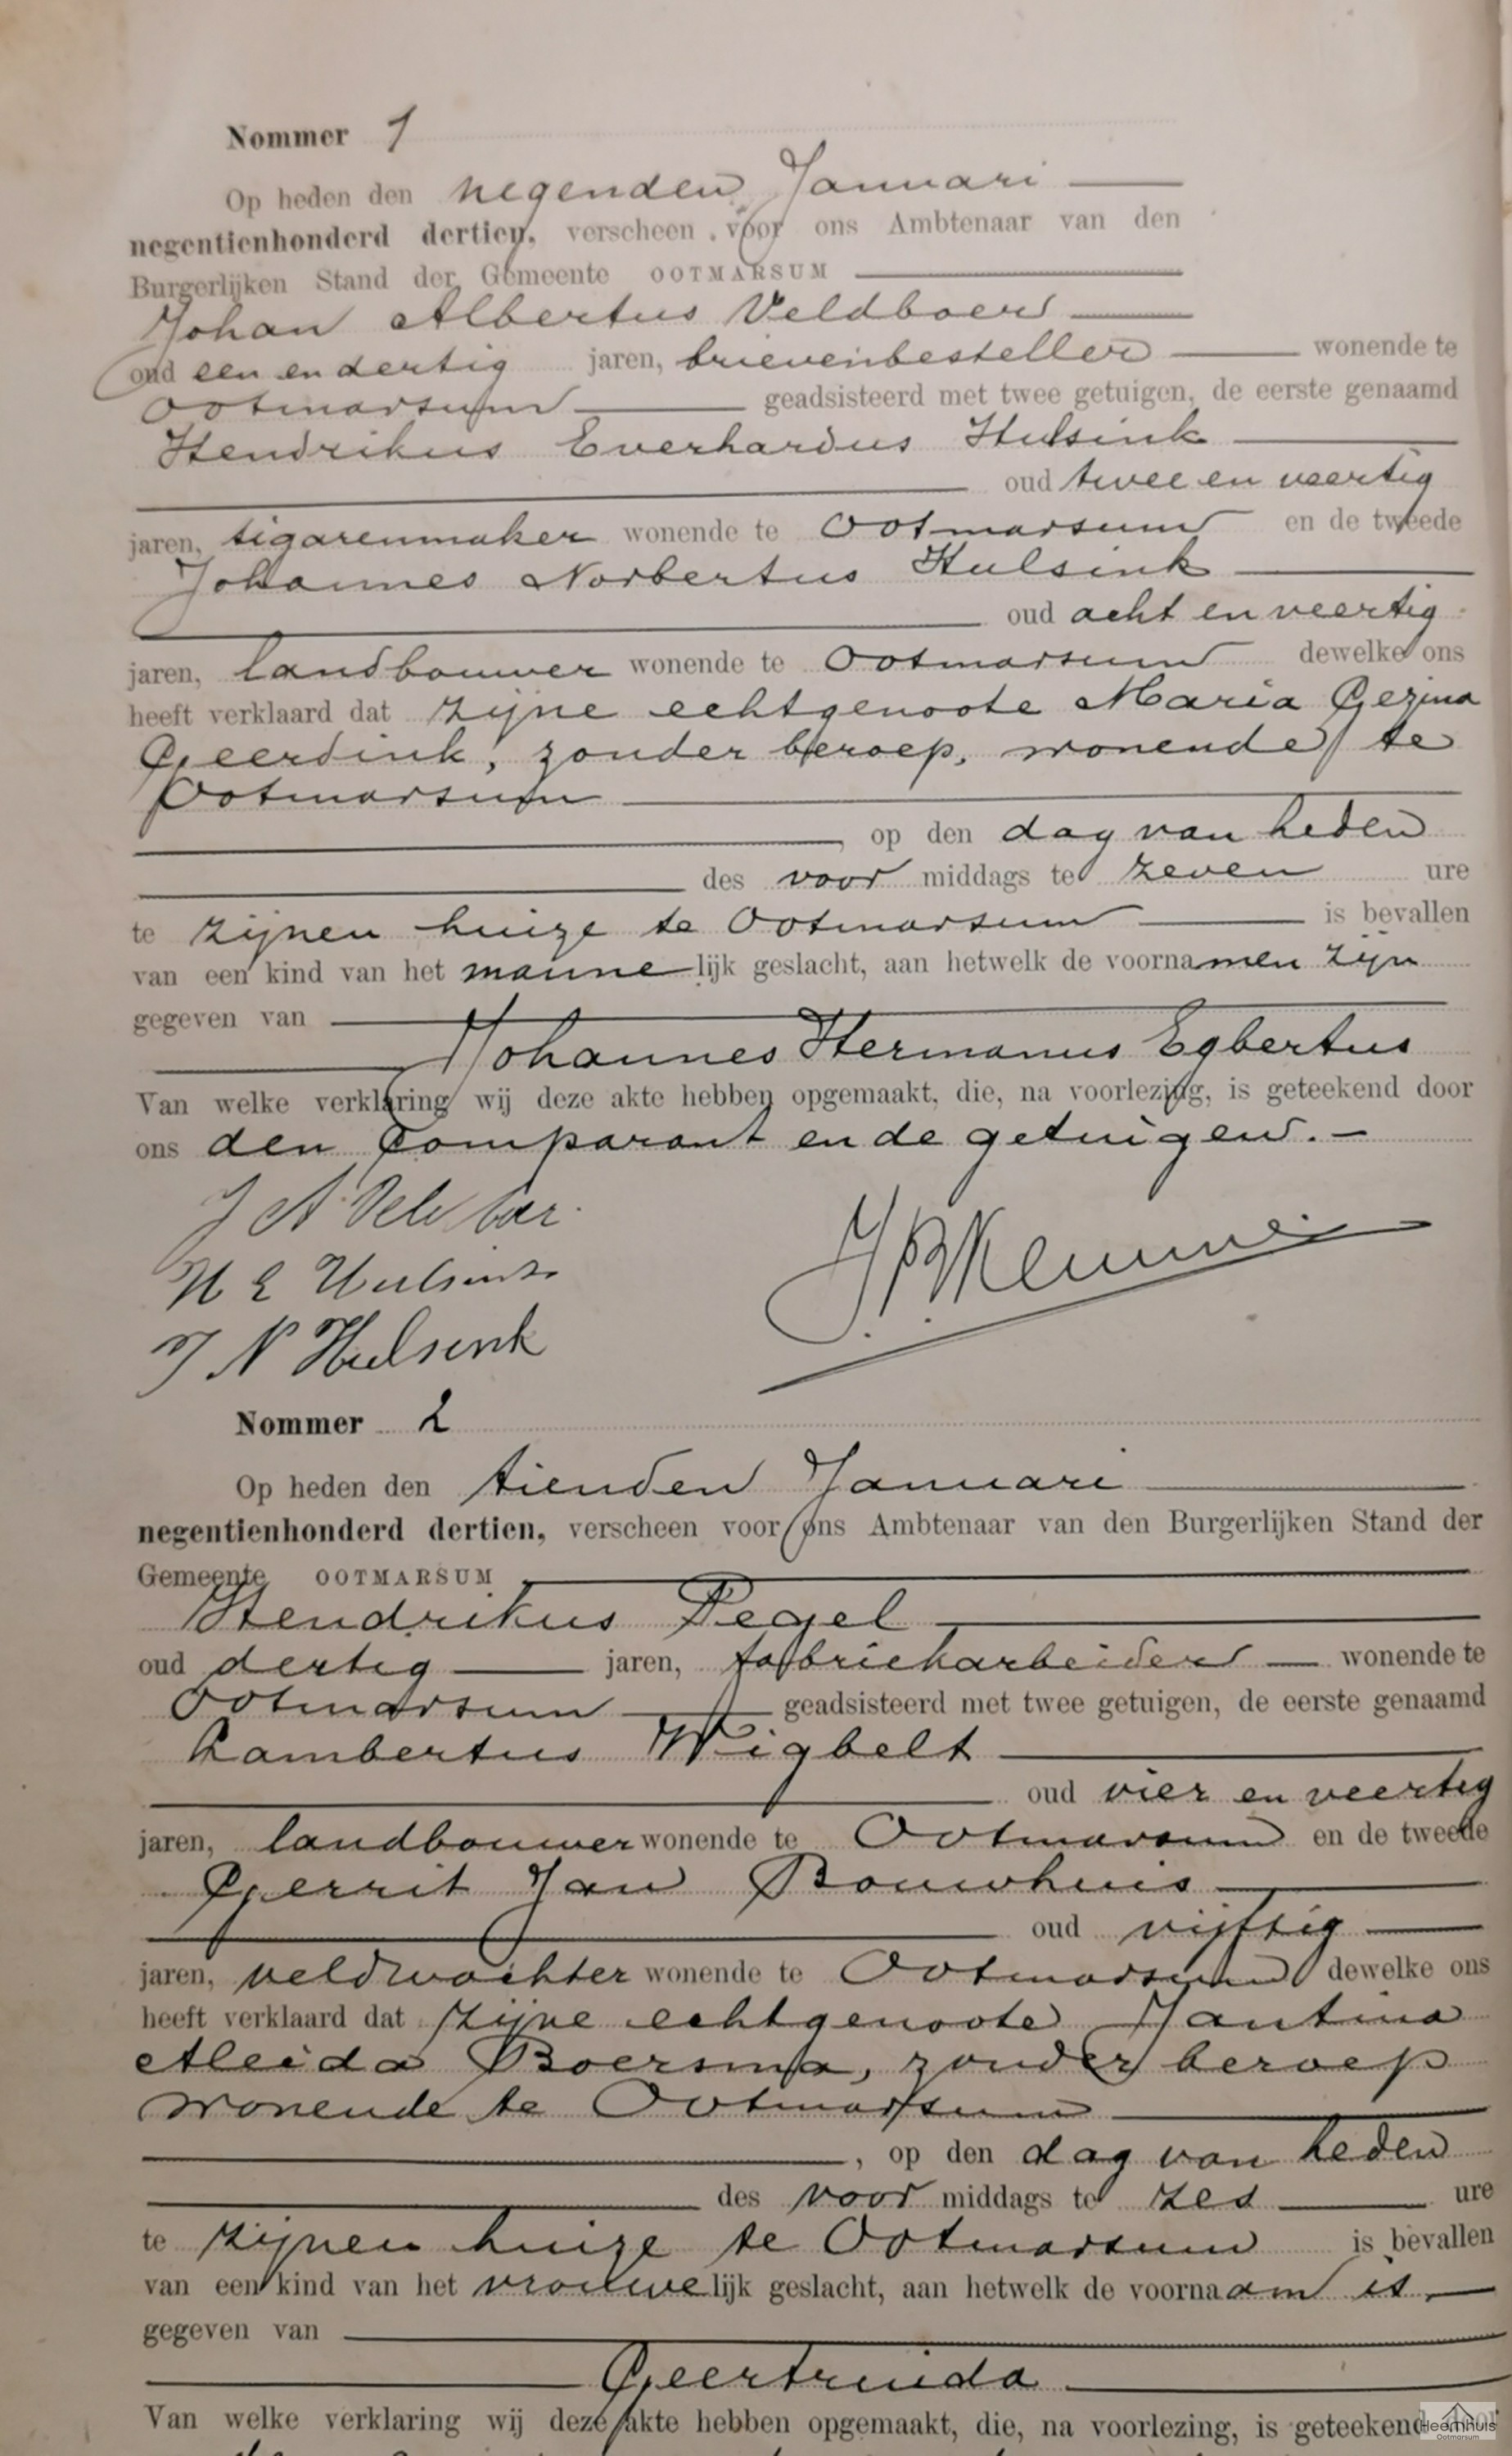 Nommer 1
Op heden den negenden Januari
negentienhonderd dertien, verscheen voor ons Ambtenaar van den
Burgerlijken Stand der Gemeente OOTMARSUM
Johan Albertus Veldboer
oud een en dertig jaren, brievenbesteller wonende te
Ootmarsum geadsisteerd met twee getuigen, de eerste genaamd
Hendrikus Everhardus Hulsink
oud twee en veertig
jaren, sigarenmaker wonende te Ootmarsum en de tweede
Johannes Norbertus Hulsink
oud acht en veertig
jaren, landbouwer wonende te Ootmarsum dewelke ons
heeft verklaard dat zijne echtgenoote Maria Gezina
Geerdink, zonder beroep, wonende te
Ootmarsum
, op den dag van heden
des voor middags te zeven ure
te zijnen huize te Ootmarsum is bevallen
van een kind van het mannelijk geslacht, aan hetwelk de voornamen zijn
gegeven van
Johannes Hermanus Egbertus
Van welke verklaring wij deze akte hebben opgemaakt, die, na voorlezing, is geteekend door
ons den comparant en de getuigen. —
J A Veldboer.
H E Hulsink
J N Hulsink
Nommer 2
Op heden den tienden Januari
negentienhonderd dertien, verscheen voor ons Ambtenaar van den Burgerlijken Stand der
Gemeente OOTMARSUM
Hendrikus Pegel
oud dertig jaren, fabriekarbeider wonende te
Ootmarsum geadsisteerd met twee getuigen, de eerste genaamd
Lambertus Wigbelt
oud vier en veertig
jaren, landbouwer wonende te Ootmarsum en de tweede
Gerrit Jan Bouwhuis
oud vijftig
jaren, veldwachter wonende te Ootmarsum dewelke ons
heeft verklaard dat zijne echtgenoote Jantina
Aleida Boersma, zonder beroep
wonende te Ootmarsum
, op den dag van heden
des voor middags te zes ure
te zijnen huize te Ootmarsum is bevallen
van een kind van het vrouwelijk geslacht, aan hetwelk de voornaam is
gegeven van
Geertruida
Van welke verklaring wij deze akte hebben opgemaakt, die, na voorlezing, is geteekend door
Heemhuis
Ootmarsum